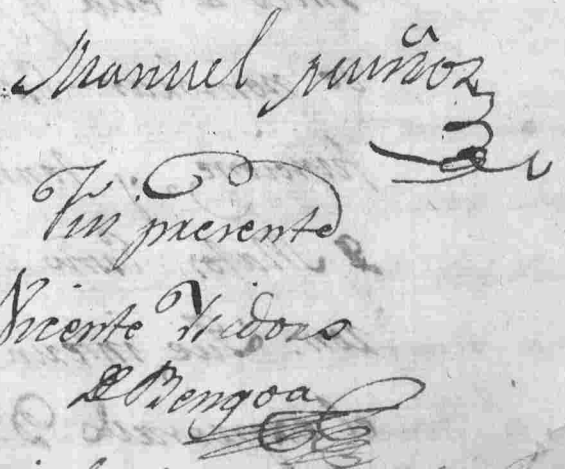 Manuel Muñoz
Fui presente
Vicente Ysidoro
de Bengoa